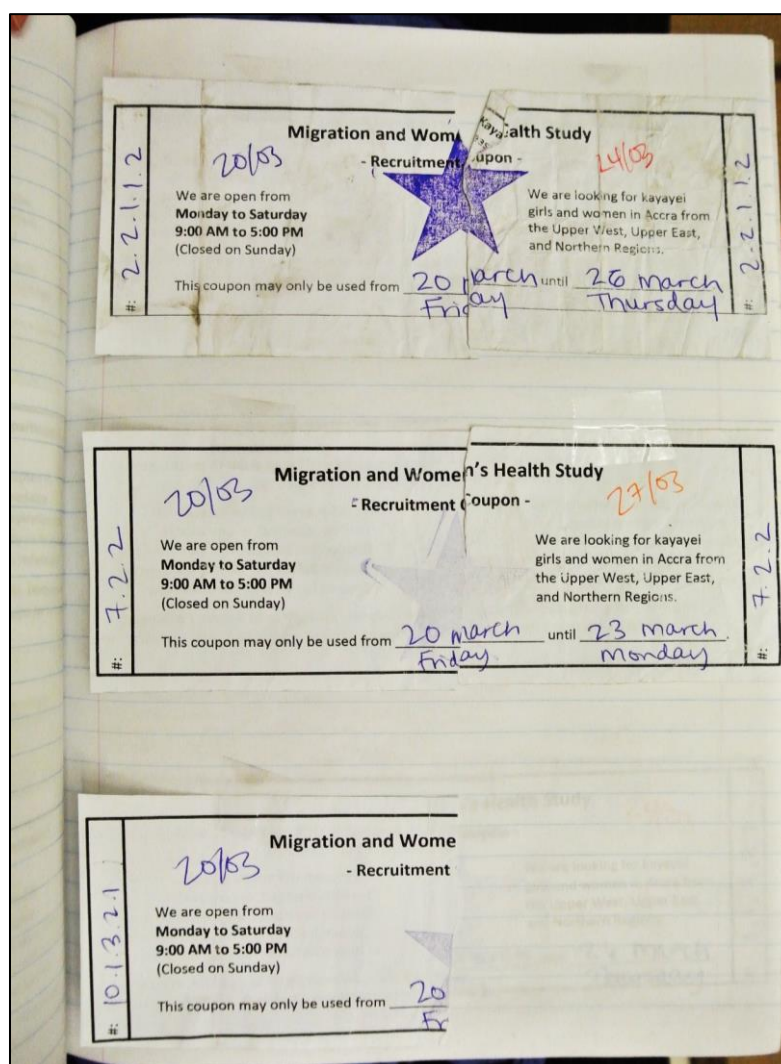 Migration and Wom alth Study
- Recruitment oupon -
20/03
24/03
We are open from
Monday to Saturday
9:00 AM to 5:00 PM
(Closed on Sunday)
We are looking for kayayei
girls and women in Accra from
the Upper West, Upper East,
and Northern Regions.
This coupon may only be used from 20 March until 26 March
Friday Thursday
#: 2.2.1.1.2
#: 2.2.1.1.2
Migration and Women's Health Study
- Recruitment Coupon -
20/03
27/03
We are open from
Monday to Saturday
9:00 AM to 5:00 PM
(Closed on Sunday)
We are looking for kayayei
girls and women in Accra from
the Upper West, Upper East,
and Northern Regions.
This coupon may only be used from 20 March until 23 March.
Friday Monday
#: 7.2.2
#: 7.2.2
Migration and Wome
- Recruitment
20/03
We are open from
Monday to Saturday
9:00 AM to 5:00 PM
(Closed on Sunday)
This coupon may only be used from 20
Fr
#: 10.1.3.2.1